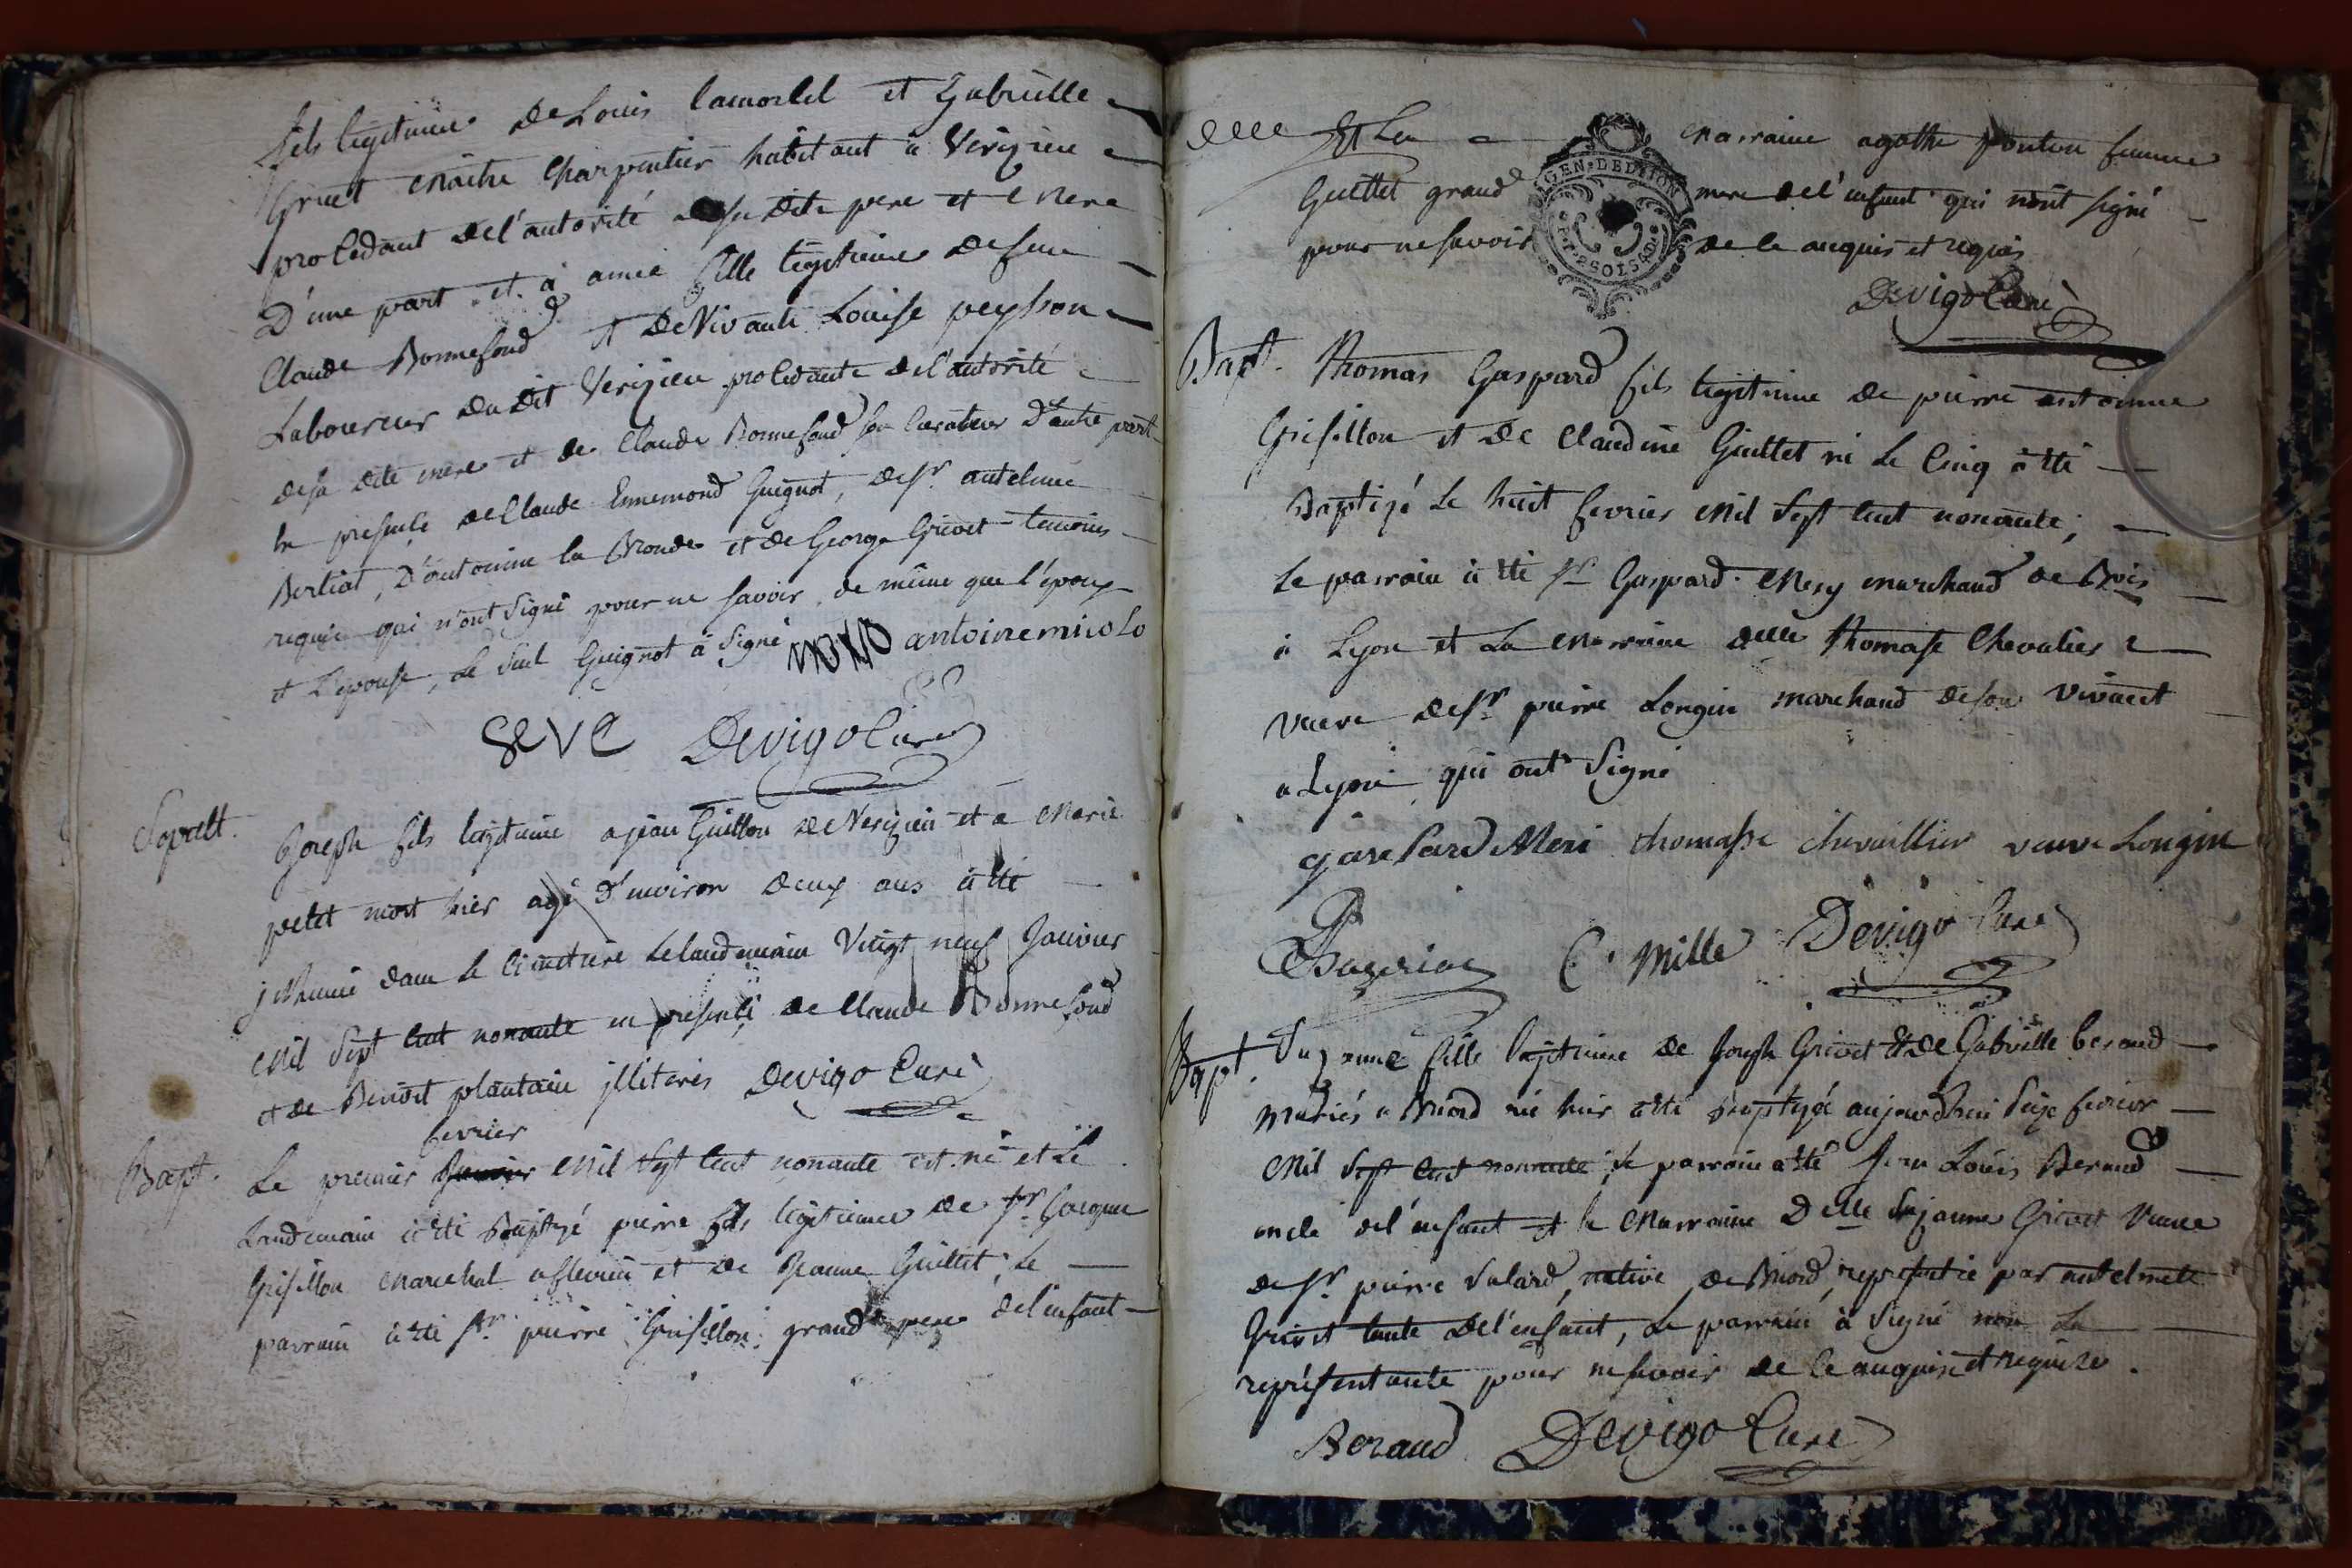 fils legitime de Louis lamorlet et Gabrielle
Grivet maitre Charpentier habitant à Verizieu
procedant de l'autorité de sesdits pere et mere
D'une part et à aimée fille legitime de feu
Claude Bonnefond et de Vivante Louise peysson
Laboureur dudit Verizieu procedante de l'autorité
desa dite mere et de Claude Bonnefond son curateur D'autre part
en presence de Claude Ennemond Guignot, de Sr. antelme
Bertiat, D'antoinne la Bronde et de George Grivet temoins
requis qui n'ont signé pour ne savoir, de même que l'époux
et l'epouse, le seul Guignot à signé antoine micolo
SEVE Devigo Curé
Sepult. Joseph fils legitime a jean Guillon de Verizieu et a Marie
petit mort hier agé d'environ deux ans à été
inhumé dans le cimetiere Lelandemain vingt neuf Janvier
mil sept cent nonante en presence de Claude Bonnefond
et de Benoît plantain illiterés Devigo Curé
fevrier
Bapt. Le premier Janvier mil sept cent nonante est né et le
Landemain à été Baptizé pierre fils legitime de Sr. Jacque
Grisillon marechal et de Jeanne Guillet, le
parrain à été Sr. pierre Grisillon grand pere de l'enfant
et la marraine agathe ponton femme
Guillet grand mere de l'enfant qui n'ont signé
pour ne savoir de ce enquis et requis
Devigo Curé
GEN. DE DIJON
Bapt. Thomas Gaspard fils legitime de pierre antoinne
Grisillon et de Claudine Guillet né le cinq à été
Baptizé le huit fevrier mil sept cent nonante;
Le parrain à été Sr Gaspard Mery marchand de Bois
à Lyon et La marraine delle thomase Chevalier
veuve de Sr. pierre Longin marchand de son vivant
a Lyon qui ont signé
gaspard Meri thomasse chevallier veuve Longin
C. Mille Devigo Curé
Bapt. Suzanne fille legitime de Joseph Grivet et de Gabrielle beraud
mariés a Briord née hier à été baptizée aujourdhui seize fevrier
mil sept cent nonante; le parrain a été Jean Louis Beraud
oncle de l'enfant et la marraine Delle Suzanne Grivet veuve
de Sr. pierre Salard, native de Briord, representée par antelmete
Grivet tante de l'enfant, Le parrain à signé non La
représentante pour ne savoir de ce enquise et requise.
Beraud Devigo Curé